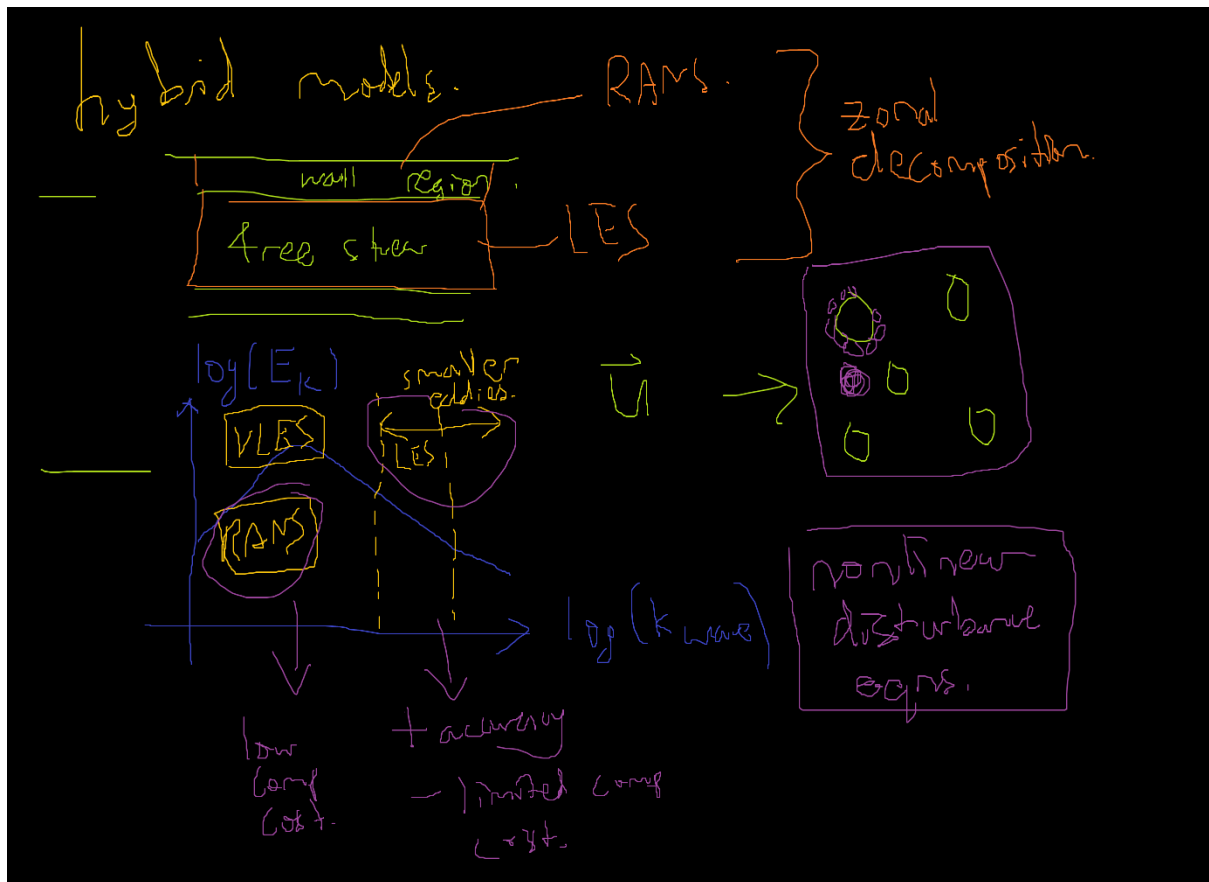 hybrid models.
RANS.
zonal
decomposition.
wall region.
free shear
LES
log(E_k)
smaller
eddies.
VLES
LES
RANS
u
log(k wave)
nonlinear
disturbance
eqns.
low
comp
cost.
+ accuracy
- limited comp
cost.